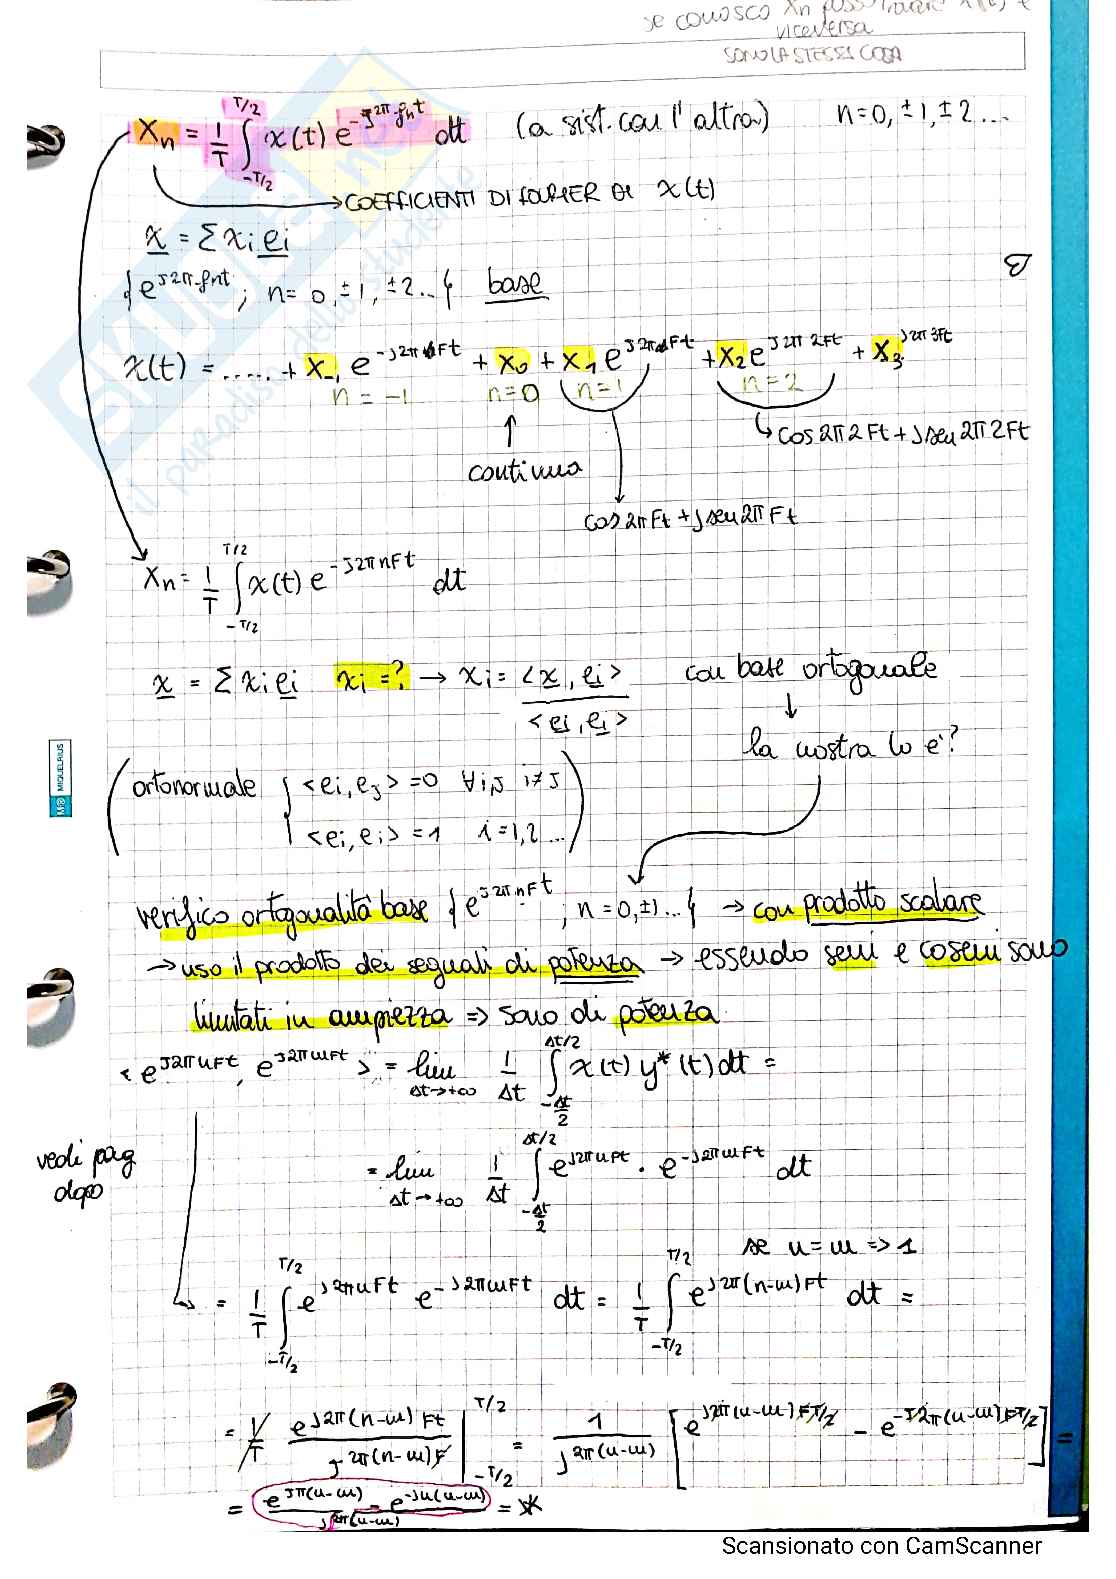 se conosco Xn posso trovare x(t) e
viceversa
SONO LA STESSA COSA
Xn = 1/T ∫_{-T/2}^{T/2} x(t) e^{-j2π fnt} dt (a sist. con l'altra) n=0, ±1, ±2 ...
COEFFICIENTI DI FOURIER DI x(t)
x = Σ xi ei
{e^{j2π fnt}; n= 0, ±1, ±2 ..} base
x(t) = ..... + X-1 e^{-j2π Ft} + X0 + X1 e^{j2π Ft} + X2 e^{j2π 2Ft} + X3 ^{j2π 3Ft}
n = -1 n=0 n=1 n=2
cos2π2Ft + j sen2π2Ft
continua
cos2πFt + j sen2πFt
Xn = 1/T ∫_{-T/2}^{T/2} x(t) e^{-j2π nFt} dt
x = Σ xi ei xi = ? → xi = <x, ei> / <ei, ei> con base ortogonale
la nostra lo è?
ortonormale { <ei, ej> = 0 ∀i,j i≠j
<ei, ei> = 1 i = 1,2 ...
verifico ortogonalità base {e^{j2πnFt}; n = 0, ±1 ...} → con prodotto scalare
→ uso il prodotto dei segnali di potenza → essendo seni e coseni sono
limitati in ampiezza => sono di potenza
<e^{j2πnFt}, e^{j2πmFt}> = lim_{Δt→+∞} 1/Δt ∫_{-Δt/2}^{Δt/2} x(t) y*(t) dt =
vedi pag
dopo
= lim_{Δt→+∞} 1/Δt ∫_{-Δt/2}^{Δt/2} e^{j2πnFt} · e^{-j2πmFt} dt
se n = m => 1
= 1/T ∫_{-T/2}^{T/2} e^{j2πnFt} e^{-j2πmFt} dt = 1/T ∫_{-T/2}^{T/2} e^{j2π(n-m)Ft} dt =
= 1/T e^{j2π(n-m)Ft} / j2π(n-m)F |_{-T/2}^{T/2} = 1 / j2π(n-m) [e^{j2π(n-m)FT/2} - e^{-j2π(n-m)FT/2}] =
= e^{jπ(n-m)} - e^{-jπ(n-m)} / j2π(n-m) = *
SKUOLA.NET
il paradiso dello studente
MIQUELRIUS
Scansionato con CamScanner